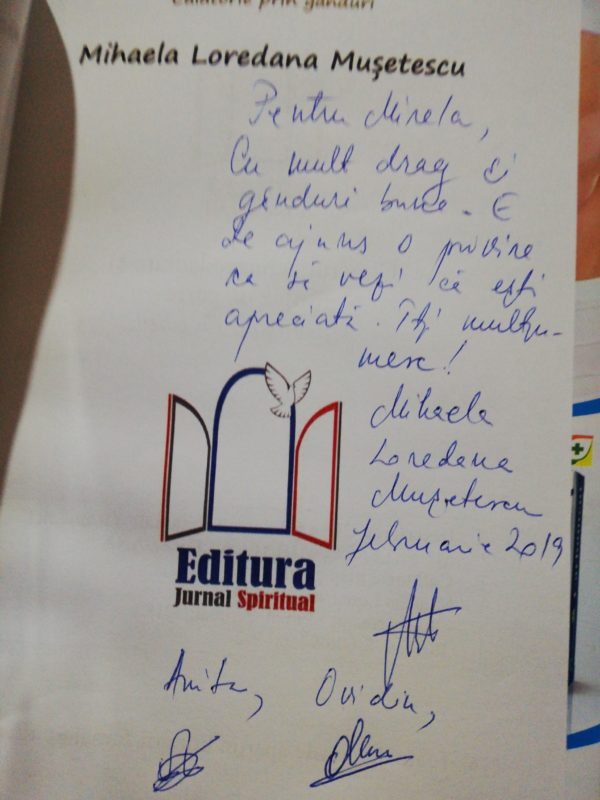 Călătorie prin gânduri
Mihaela Loredana Mușetescu
Pentru Mirela,
Cu mult drag și
gânduri bune. E
de ajuns o privire
ca să vezi că ești
apreciată. Îți mulțu-
mesc!
Mihaela
Loredana
Mușetescu
februarie 2019
Editura
Jurnal Spiritual
Anita, Ovidiu,